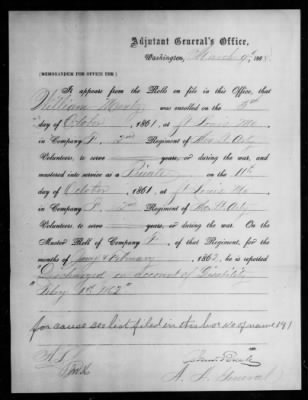 Adjutant General's Office,
Washington, March 9", 1868.
[MEMORANDUM FOR OFFICE USE.]
It appears from the Rolls on file in this Office, that
William was enrolled on the 3rd
day of October, 1861, at St Louis Mo
in Company F. 2nd Regiment of Mo. L. Arty
Volunteers, to serve years, or during the war, and
mustered into service as a Private on the 11th
day of October, 1861, at St Louis Mo.
in Company F. 2nd Regiment of Mo. L. Arty
Volunteers, to serve years, or during the war. On the
Muster Roll of Company F, of that Regiment, for the
months of Jany & February, 1862, he is reported
"Discharged on account of Disability
Feby 1862"
for cause see list filed in this box No of name 191
A. A. General